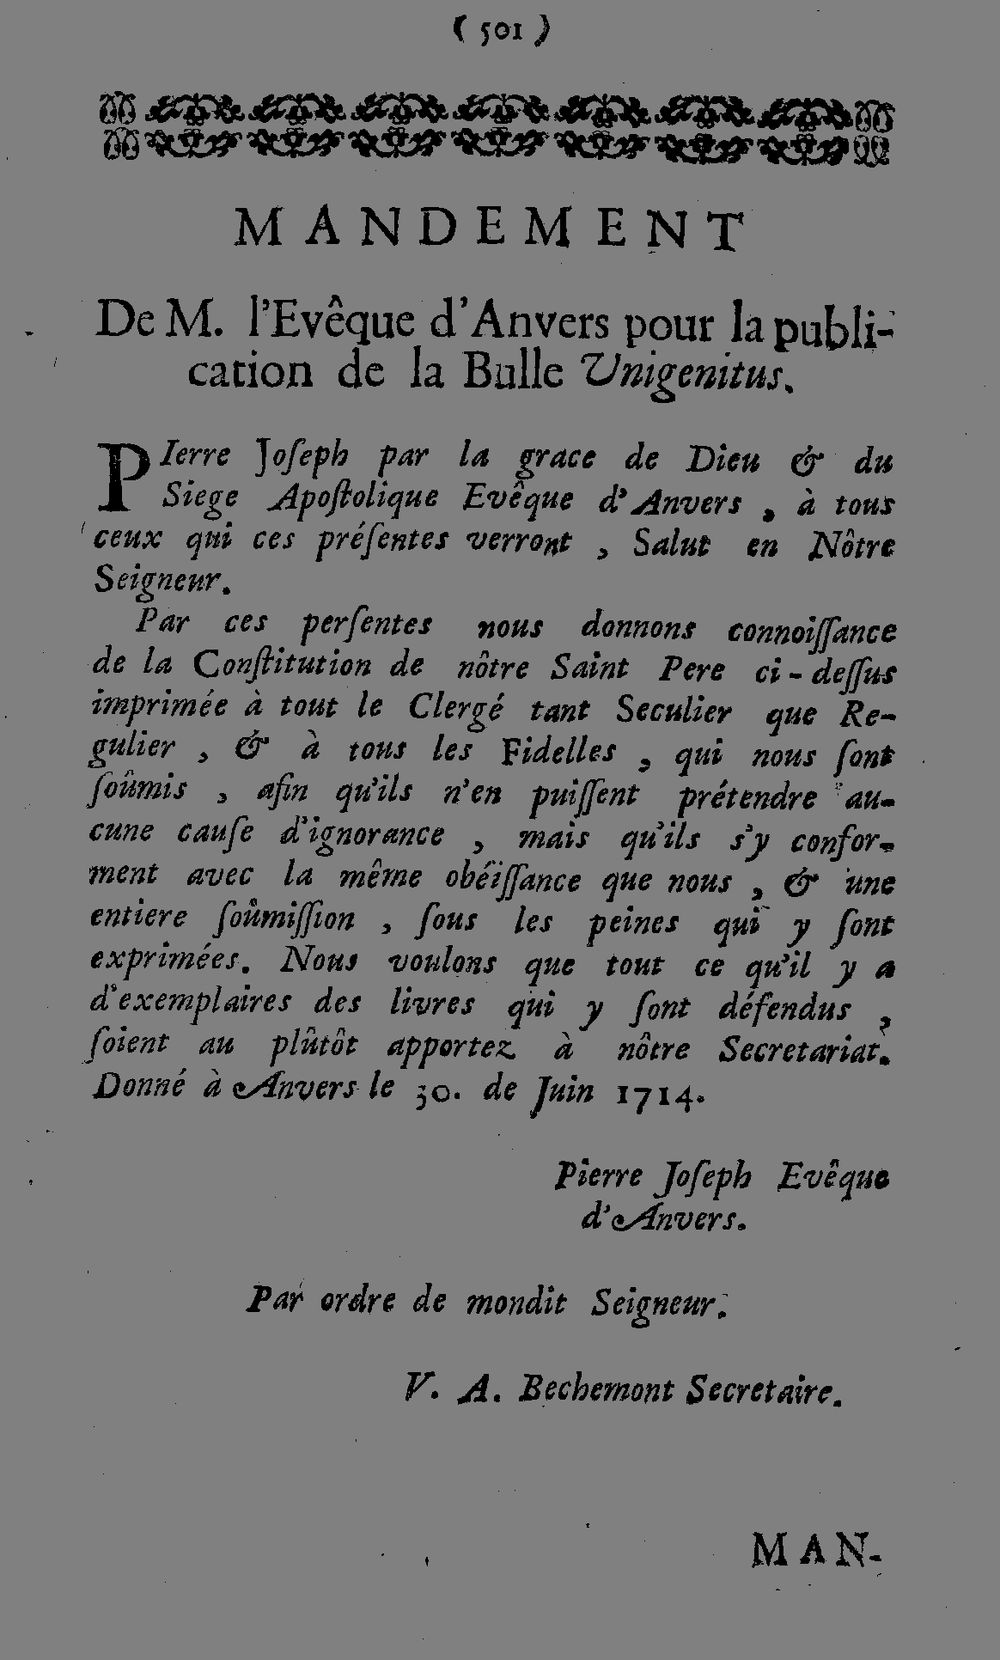 ( 501 )
MANDEMENT
De M. l'Evêque d'Anvers pour la publi-
cation de la Bulle Unigenitus.
PIerre Joſeph par la grace de Dieu & du
Siege Apoſtolique Evêque d'Anvers, à tous
ceux qui ces préſentes verront, Salut en Nôtre
Seigneur.
Par ces perſentes nous donnons connoiſſance
de la Conſtitution de nôtre Saint Pere ci-deſſus
imprimée à tout le Clergé tant Seculier que Re-
gulier, & à tous les Fidelles, qui nous ſont
ſoûmis, afin qu'ils n'en puiſſent prétendre au-
cune cauſe d'ignorance, mais qu'ils s'y confor-
ment avec la même obéïſſance que nous, & une
entiere ſoûmiſſion, ſous les peines qui y ſont
exprimées. Nous voulons que tout ce qu'il y a
d'exemplaires des livres qui y ſont défendus,
ſoient au plûtôt apportez à nôtre Secretariat.
Donné à Anvers le 30. de Juin 1714.
Pierre Joſeph Evêque
d'Anvers.
Par ordre de mondit Seigneur.
V. A. Bechemont Secretaire.
MAN-